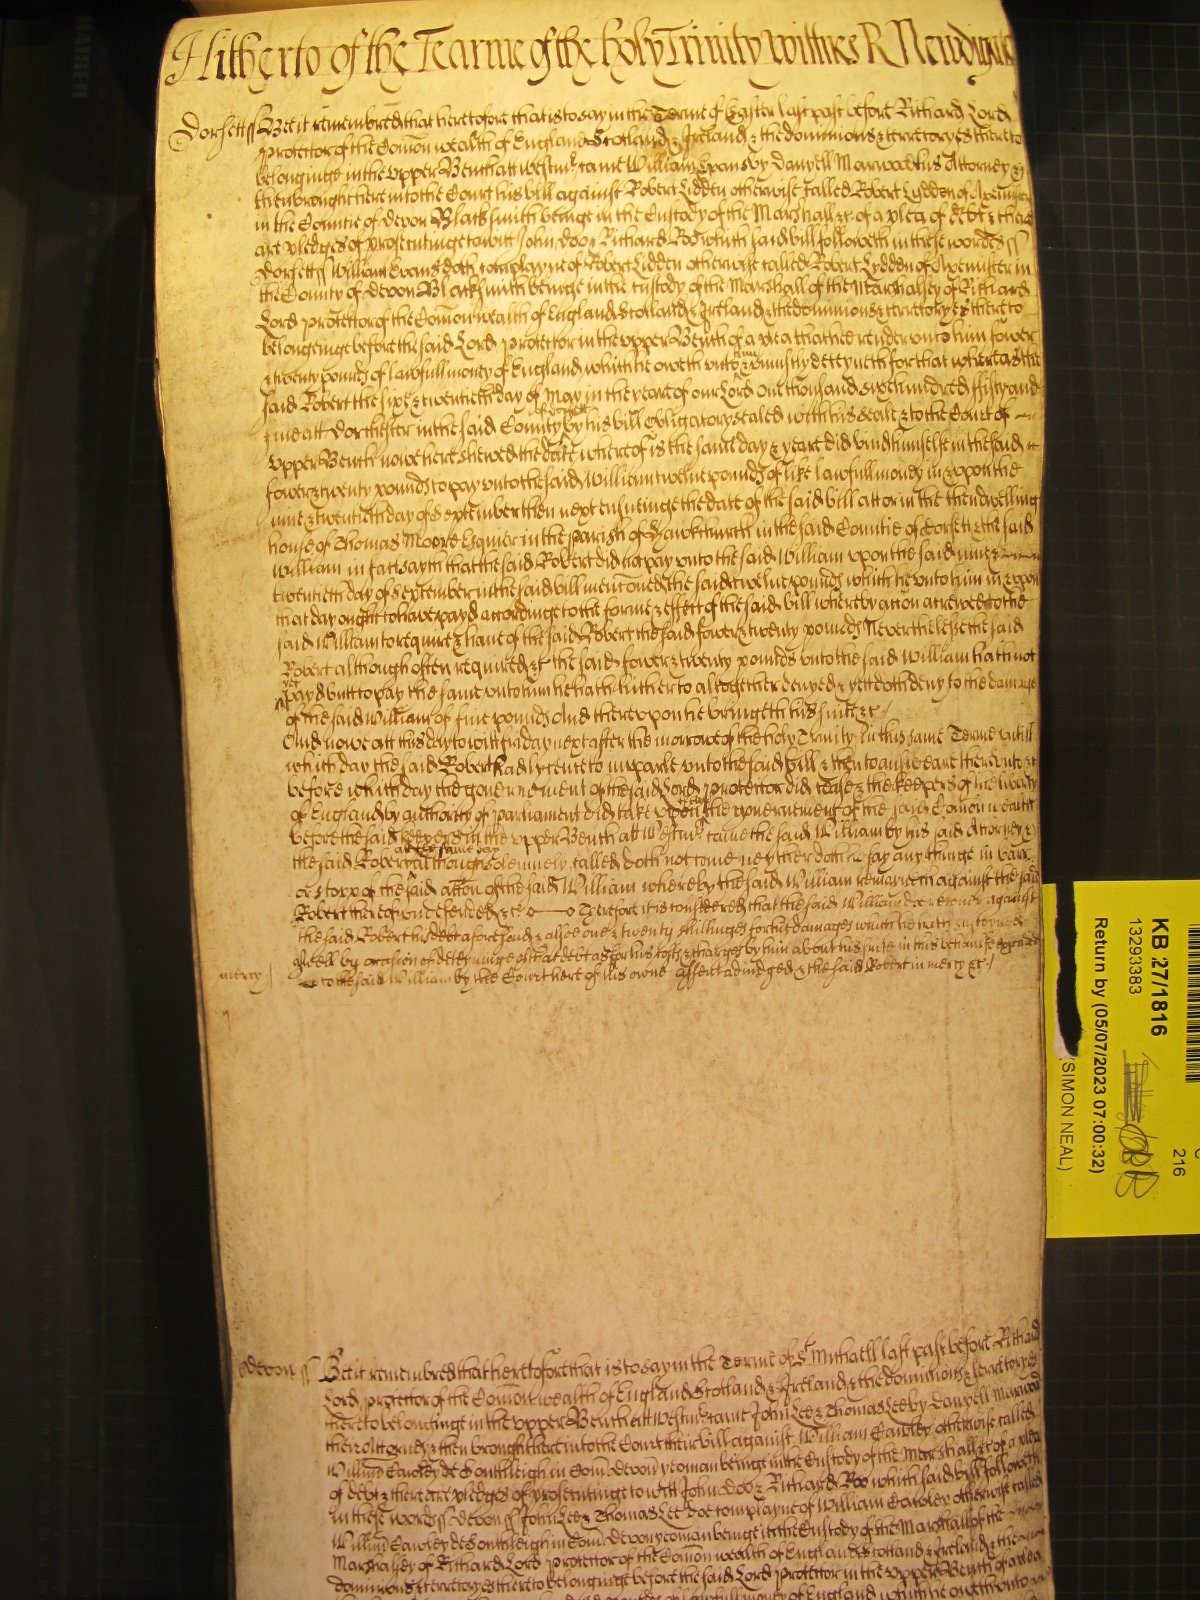 Hitherto of the Tearme of the holy Trinity Wittnes R Newdigate
Dorsett ss Bee it remembred that heretofore that is to say in the Terme of Easter last past before Richard Lord
Protector of the Com̄on wealth of England Scotland & Ireland & the dominions & terrytoryes thereto
belonginge in the upper Bench att Westmr came William Evans by Danyell Marwood his Attorney &
then brought here into the Court his bill against Robert Lydden otherwise called Robert Lydden of Axmister
in the Countie of Devon Blacksmith beinge in the Custody of the Marshall &c of a plea of debt & there
are pledges of prosecutinge to witt John Doo & Richard Roo which said bill followeth in these wordes ss
Dorsett ss William Evans doth complayne of Robert Lidden otherwise called Robert Lydden of Axemister in
the County of Devon Blacksmith beinge in the custody of the Marshall of the Marshalsey of Richard
Lord Protector of the Com̄on wealth of England Scotland & Ireland & the dominions & terrytoryes thereto
belonginge before the said Lord Protector in the upper Bench of a plea that he render unto him fower
& twenty pounds of lawfull money of England which he oweth unto him & uniustly deteyneth for that whereas the
said Robert the sixe & twentieth day of May in the yeare of our Lord one thousand six hundred fifty and
five att Dorchester in the said County of Dorsett by his bill obligatory sealed with his seale & to the Court of
upper Bench nowe here shewed the date whereof is the same day & yeare did bind himselfe in the said
fower & twenty pounds to pay unto the said William twelve pounds of like lawfull money in & upon the
nine & twentieth day of September then next ensueinge the date of the said bill att or in the then dwelling
house of Thomas Moore Esquier in the parish of Hawkchurch in the said Countie of Dorsett & the said
William in fact sayth that the said Robert did not pay unto the said William upon the said nine &
twentieth day of September in the said bill mencōned the said twelve pounds which he unto him in & upon
that day ought to have payd accordinge to the forme & effect of the said bill whereby acc̄on accrewed to the
said William to require & have of the said Robert the said fower & twenty pounds Neverthelesse the said
Robert although often required &c the said fower & twenty pounds unto the said William hath not
yet
payd butt to pay the same unto him he hath hitherto altogether denyed & yett doth deny to the damage
of the said William of five pounds And thereupon he bringeth his suite &c
And nowe att this day to witt friday next after the morrowe of the holy Trinity in this same Terme untill
which day the said Robert had lycence to imparle unto the said bill & then to answeare thereunto &c
before which day the governement of the said Lord Protector did cease & the keepers of the liberty
of England by authority of parliament did take upon them the governement of the said Com̄on wealth
before the said keepers in the upper Bench att Westmr came the said William by his said Attorney &
the said Robert att the same day although solemnely called doth not come neyther doth he say any thinge in barr
or stopp of the said acc̄on of the said William whereby the said William remayneth against the said
Robert thereupon undefended &c Therefore it is considered that the said William doe recover against
the said Robert his debt aforesaid & alsoe one & twenty shillinges for his damages which he hath susteyned
aswell by occasion of deteyninge of that debt as for his costs & charges by him about his suite in this behalfe expended
mercy to the said William by the Court here of his owne assent adiudged & the said Robert in mercy &c
Devon ss Bee it remembred that heretofore that is to say in the Terme of St Michaell last past before Richard
Lord Protector of the Com̄on wealth of England Scotland & Ireland & the dominions & terrytoryes
thereto belonginge in the upper Bench att Westmr came John Lee & Thomas Lee by Danyell Marwood
their Attorney & then brought here into the Court their bill against William Cawley otherwise called
Willm̄ Cawley de Southleigh in Com̄ Devon yeoman beinge in the Custody of the Marshall &c of a plea
of debt & there are pledges of prosecutinge to witt John Doo & Richard Roo which said bill followeth
in these wordes ss Devon ss John Lee & Thomas Lee doe complayne of William Cawley otherwise called
Willm̄ Cawley de Southleigh in Com̄ Devon yeoman beinge in the Custody of the Marshall of the
Marshalsey of Richard Lord Protector of the Com̄on wealth of England Scotland & Ireland & the
dominions & terrytoryes thereto belonginge before the said Lord Protector in the upper Bench of a plea
of lawfull money of England which he oweth unto
KB 27/1816
13293383
Return by (05/07/2023 07:00:32)
(SIMON NEAL)
216